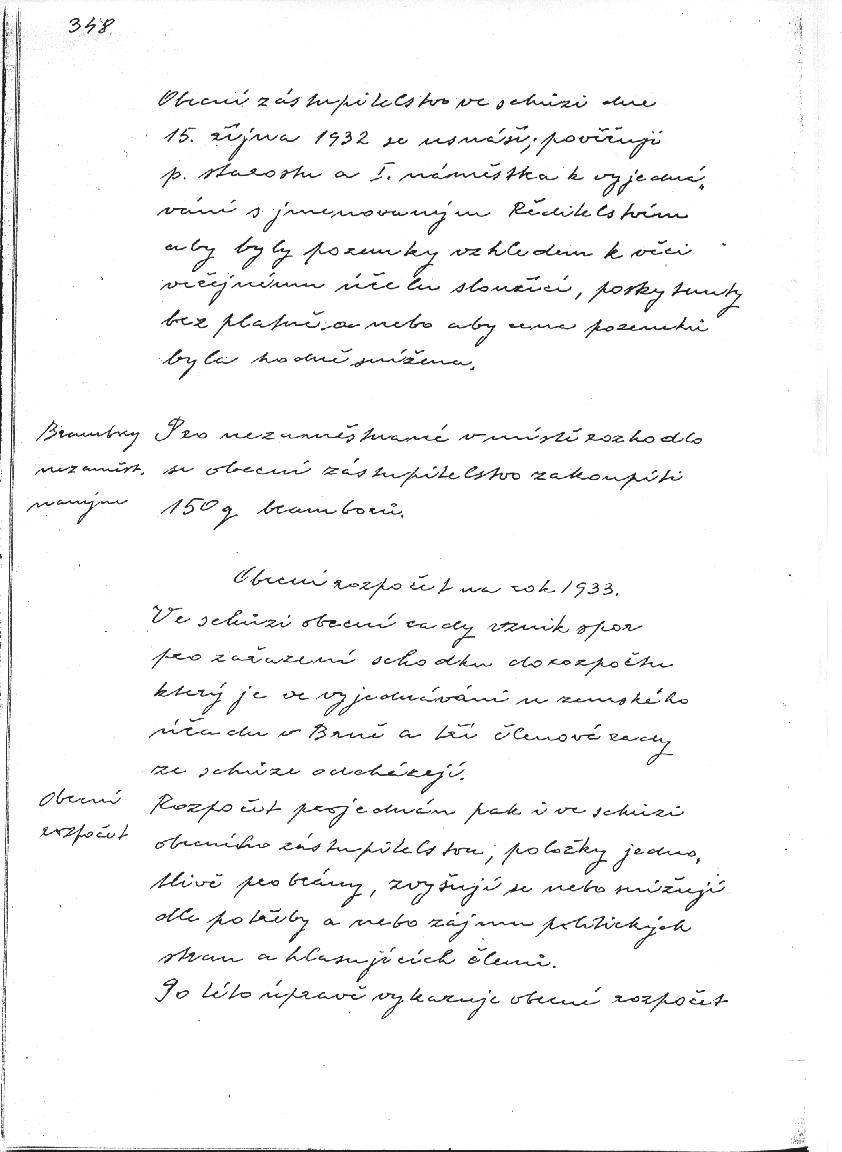 348
Obecní zástupitelstvo ve schůzi dne
15. října 1932 se usnáší, pověřují
p. starostu a I. náměstka k vyjedná„
vání s jmenovaným Ředitelstvím
aby byly pozemky vzhledem k věci
veřejnému účelu sloužící, poskytnuty
bez platně a nebo aby cena pozemků
byla hodně snížena.
Brambory
nezaměst.
naným
Pro nezaměstnané v místě rozhodlo
se obecní zástupitelstvo zakoupiti
150 q bramborů.
Obecní rozpočet na rok 1933.
Ve schůzi obecní rady vznik spor
pro zařazení schodku do rozpočtu
který je ve vyjednávání u zemského
úřadu v Brně a tři členové rady
ze schůze odcházejí.
Obecní
rozpočet
Rozpočet projednán pak i ve schůzi
obecního zástupitelstva, položky jedno„
tlivě probrány, zvyšují se nebo snižují
dle potřeby a nebo zájmu politických
stran a hlasujících členů.
Po této úpravě vykazuje obecní rozpočet